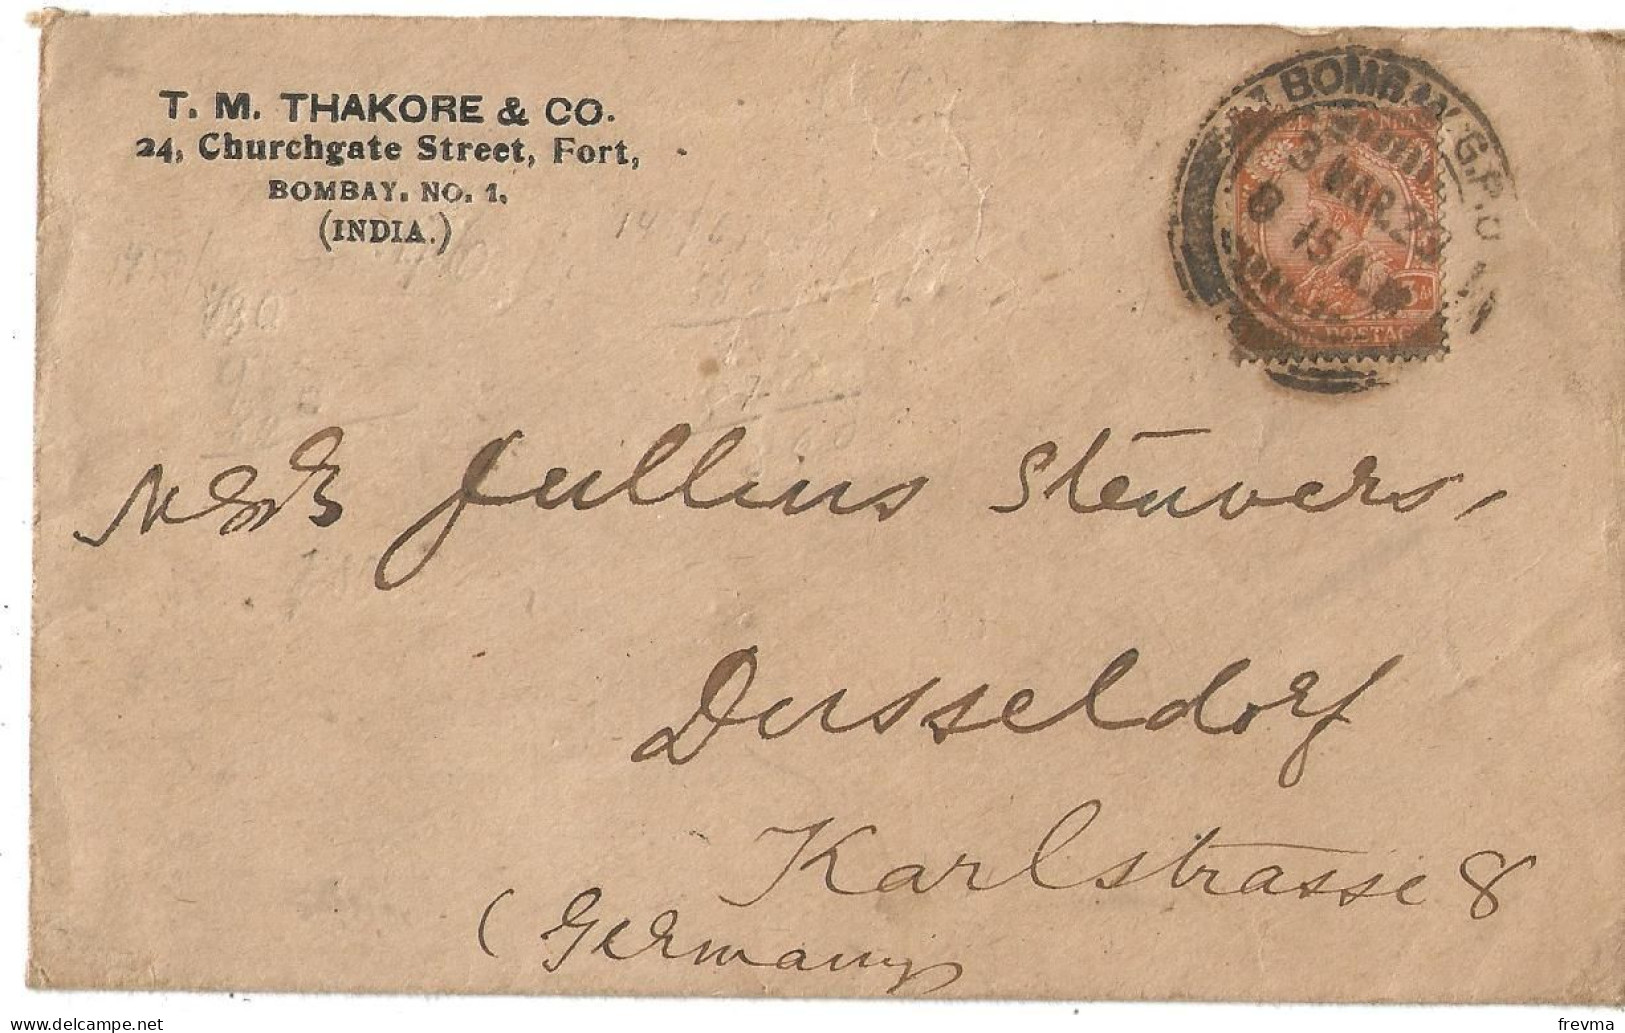 T. M. THAKORE & CO.
24, Churchgate Street, Fort,
BOMBAY. NO. 1.
(INDIA.)
BOMBAY. G.P.O
3
MAR. 23
8 15 A.M
POSTAG
Jullius Stenvers,
Dusseldorf
Karlstrasse 8
(Germany
frevma